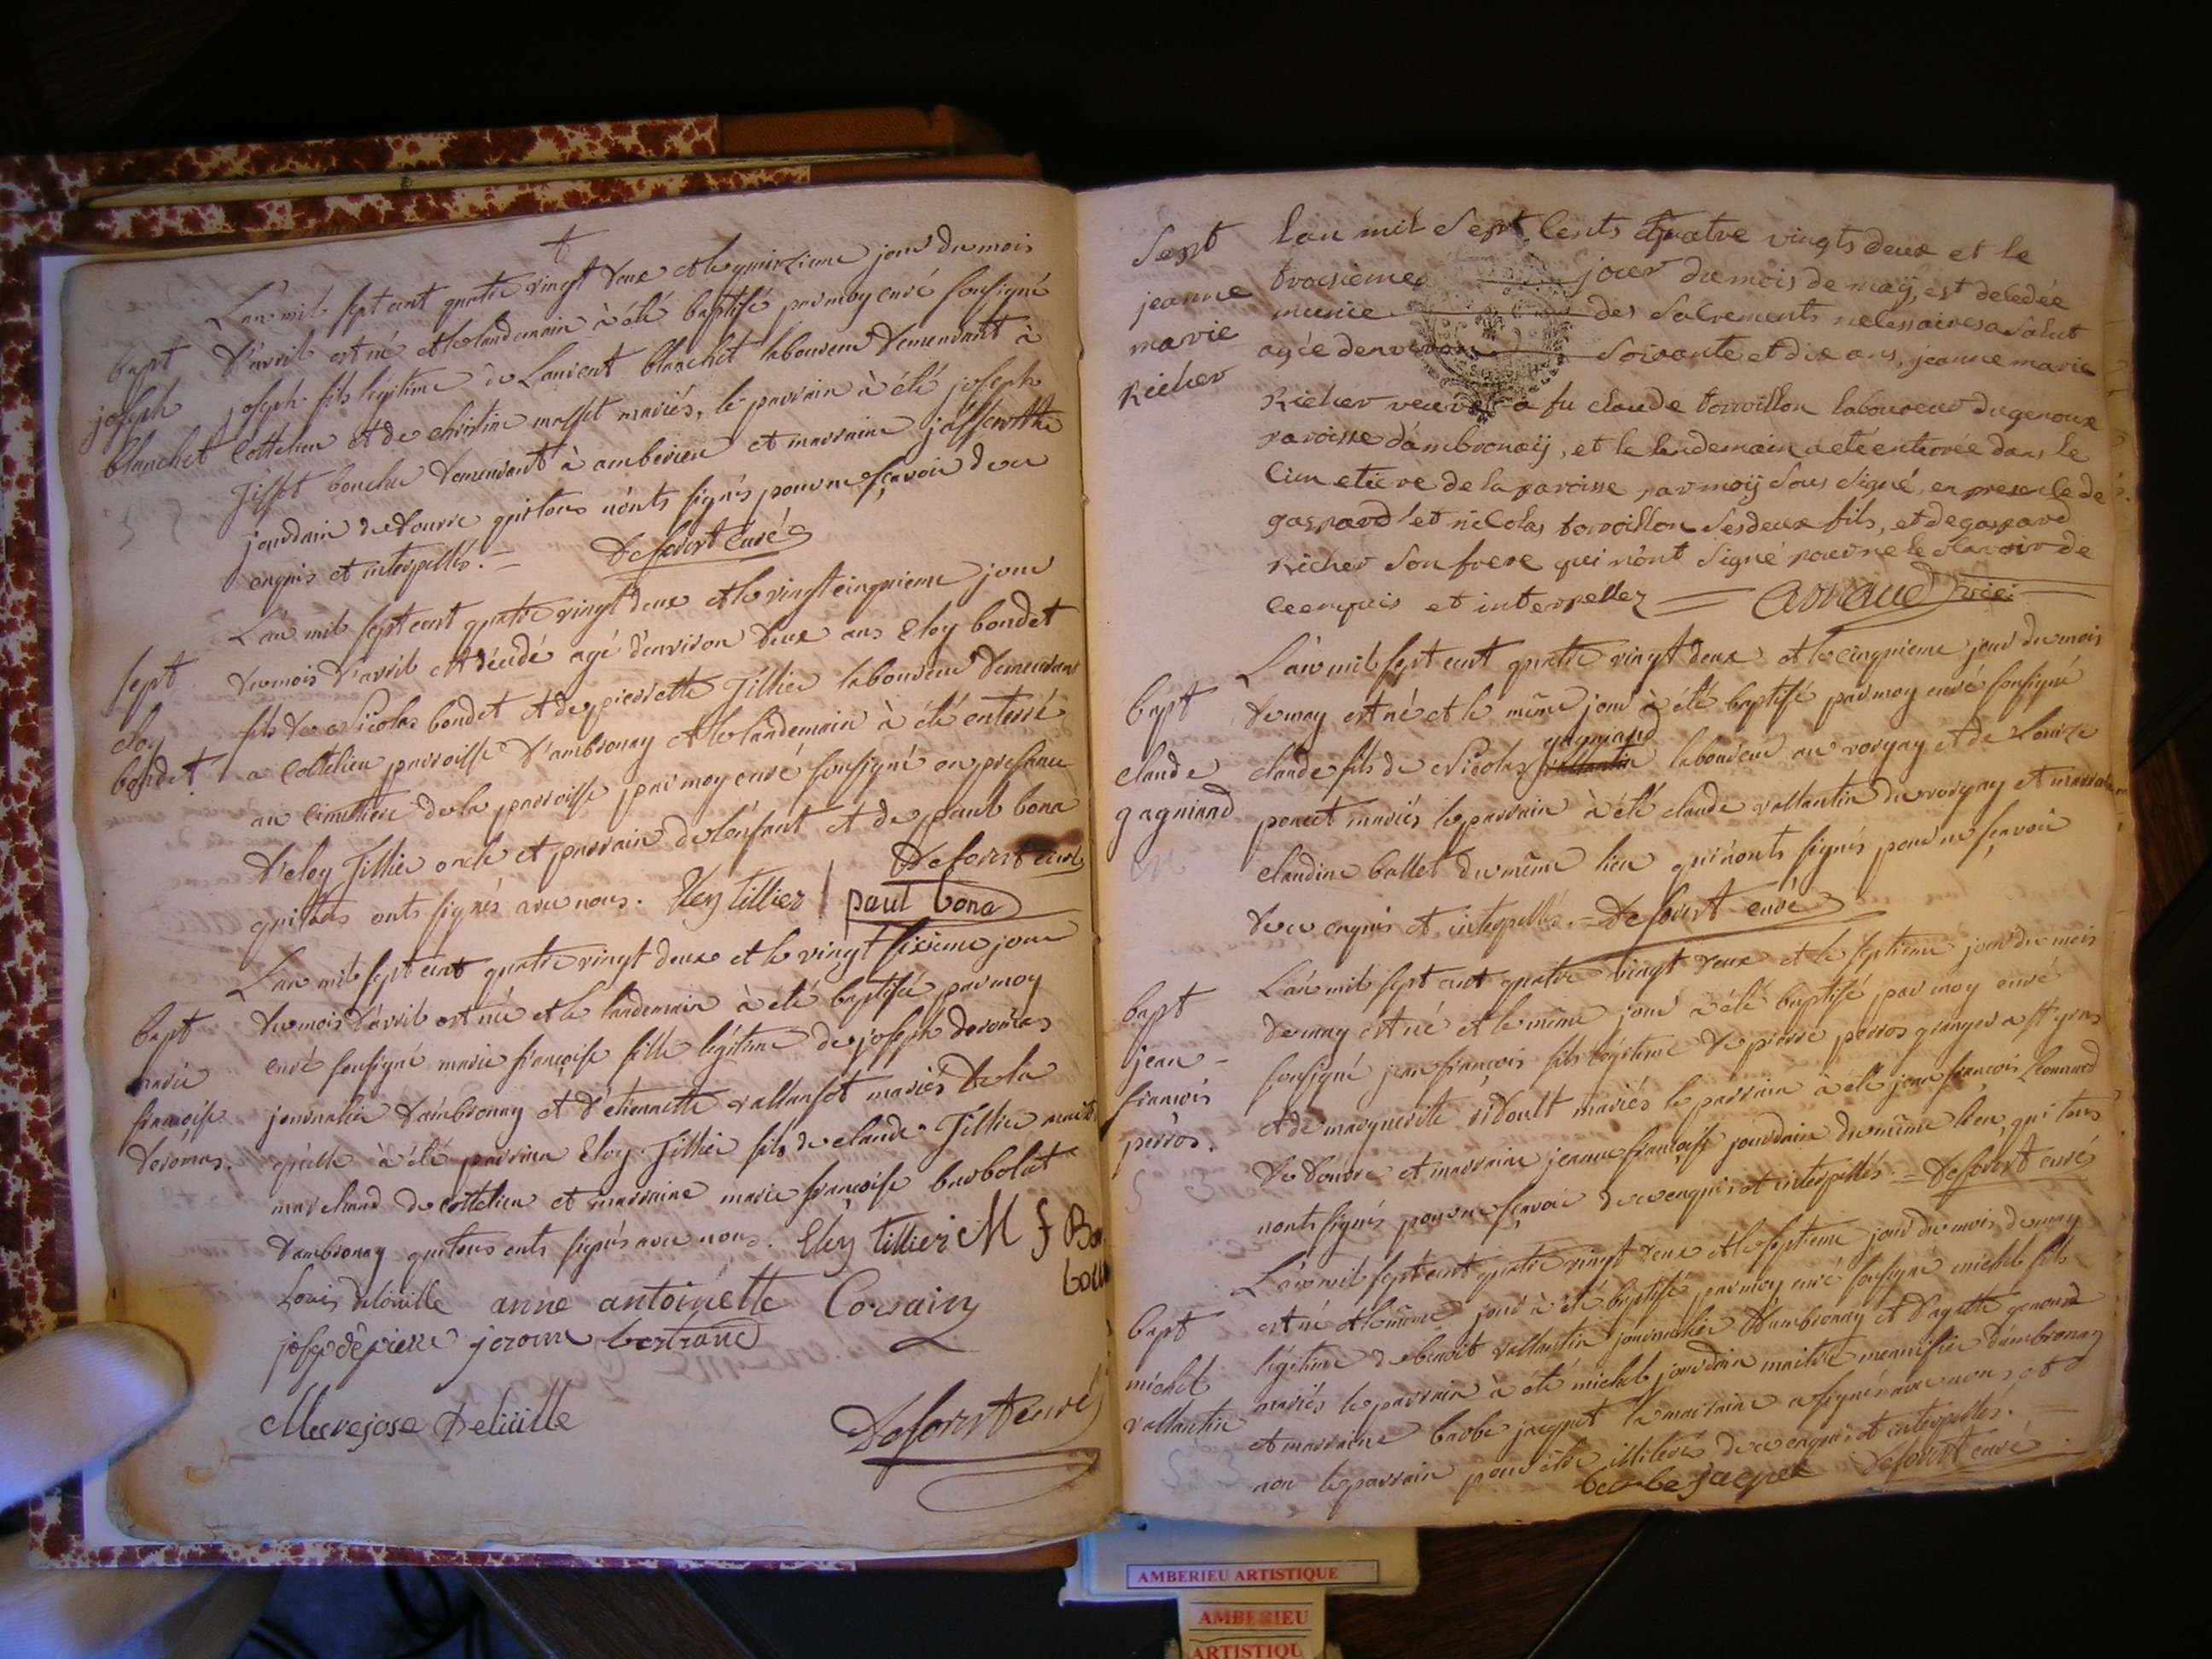 L'an mil sept cent quatre vingt deux et le quinzieme jour du mois
bapt
joseph
blanchet
d'avril est né et le landemain à été baptisé par moy curé sousigné
joseph fils legitime de Laurent blanchet laboureur demeurant à
Cottelieu et de christine mosset mariés, le parrain à été joseph
Tissot boucher demeurant à amberieu et marraine
jourdain de douvre qui tous n'onts signés pour ne sçavoir de ce
enquis et interpellés. = Deforest Curé
L'an mil sept cent quatre vingt deux et le vingt cinquieme jour
sept
eloy
bondet.
du mois d'avril est décédé agé d'environ deux ans Eloy bondet
fils de Nicolas bondet et de pierrette Tillier laboureur demeurant
a Cottelieu parroisse d'ambronay et le landemain à été enterré
au Cimettiere de la parroisse par moy curé sousigné en presance
d'eloy Tillier oncle et parrain de l'enfant et de paul bona
qui tous onts signés avec nous. Eloy tillier paul bona Deforest curé
L'an mil sept cent quatre vingt deux et le vingt sixieme jour
bapt
marie
françoise
deromas.
du mois d'avril est née et le landemain à été baptisée par moy
curé sousigné marie françoise fille legitime de joseph deromas
journalier d'ambronay et d'etiennette vallansot mariés
à été parrain Eloy Tillier fils de claude Tillier
marchand de cottelieu et marraine marie françoise barbolat
d'ambronay qui tous onts signés avec nous. Eloy tillier M f
Louis anne antoinette
jerome bertrand
Deforest curé
Sept
jeanne
marie
Richer
Lan mil Sept Cents Quatre vingts deux et le
troisieme jour du mois de maÿ, est decedée
munie des Sacrements necessaires a Salut
agée denviron Soixante et dix ans, jeanne marie
Richer veuve a fu claude torvoillon laboureur du genoux
paroisse d'ambronaÿ, et le landemain a été enterrée dans le
Cimetiere de la paroisse par moÿ Sous Signé, en presence de
gaspard et nicolas torvoillon Ses deux fils, et de gaspard
Richer Son frere qui n'ont Signé pour ne le Scavoir de
ce enquis et interpellez = vic:
L'an mil sept cent quatre vingt deux et le cinquieme jour du mois
bapt
claude
gagniand
de may est né et le même jour à été baptisé par moy curé sousigné
gagniand
claude fils de Nicolas vallantin laboureur au vorgay et de Louize
poncet mariés le parrain à été claude vallantin du vorgay et marraine
claudine ballet du même lieu qui n'onts signés pour ne sçavoir
de ce enquis et interpellés. = Deforest curé
L'an mil sept cent quatre vingt deux et le septieme jour du mois
bapt
jean-
françois
perros.
de may est né et le même jour à été baptisé par moy curé
sousigné jean françois fils légitime de pierre perros granger a
et de marguerite ridoult mariés le parrain à été jean françois Leonnard
de douvre et marraine jeanne françoise jourdain du même lieu, qui tous
n'onts signés pour ne sçavoir de ce enquis et interpellés = Deforest curé
L'an mil sept cent quatre vingt deux et le septieme jour du mois de may
bapt
michel
vallantin
est né et le même jour à été baptisé par moy curé sousigné michel fils
légitime de benoit vallantin journalier d'ambronay et d'agathe genoud
mariés le parrain à été michel jourdain maitre menuisier d'ambronay
et marraine barbe jacquet la marraine a signé avec nous et
non le parrain pour être illiteré de ce enquis et interpellés.
barbe jacquet Deforest curé
AMBERIEU ARTISTIQUE
AMBERIEU
ARTISTIQU